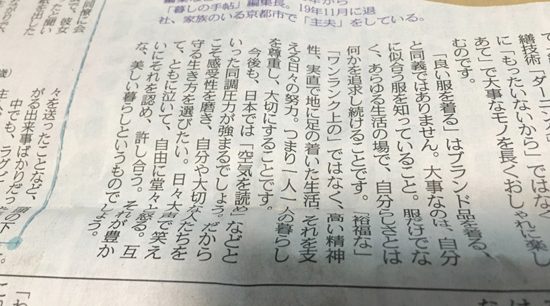 「暮しの手帖」編集長。19年11月に退
社、家族のいる京都市で「主夫」をしている。
繕技術「ダーニン
に「もったいないから」
あて」で大事なモノを長くおしゃれに楽し
むのです。
「良い服を着る」はブランド品を着る、
と同義ではありません。大事なのは、自分
に似合う服を知っていること。服だけでな
く、あらゆる生活の場で、自分らしさとは
何かを追求し続けることです。「裕福な」
「ワンランク上の」ではなく、高い精神
性、実直で地に足の着いた生活、それを支
える日々の努力。つまり一人一人の暮らし
を尊重し、大切にすることです。
今後も、日本では「空気を読め」などと
いった同調圧力が強まるでしょう。だから
こそ感受性を磨き、自分や大切な人たちを
守る生き方を選びたい。日々大声で笑え
て、ともに泣いて、自由に堂々と怒る。互
いにそれを認め、許し合う。それが豊か
な、美しい暮らしというものでしょう。
同時に会
彼女
々を送ったことなど、
がる出来事ばかりだっ
中でも、ラグビ